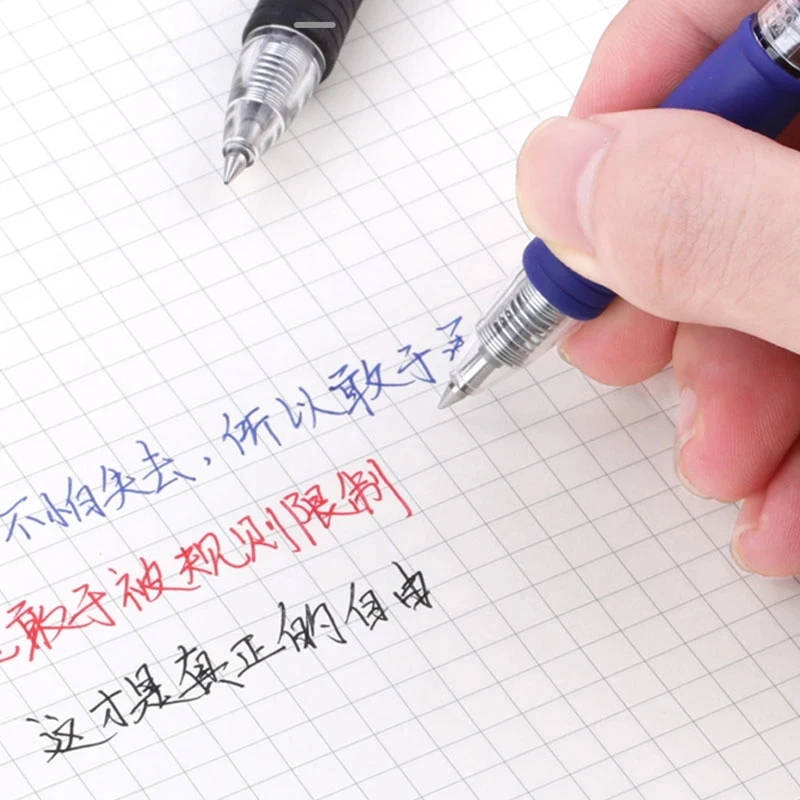 不怕失去，所以敢于
敢于被规则限制
这才是真正的自由